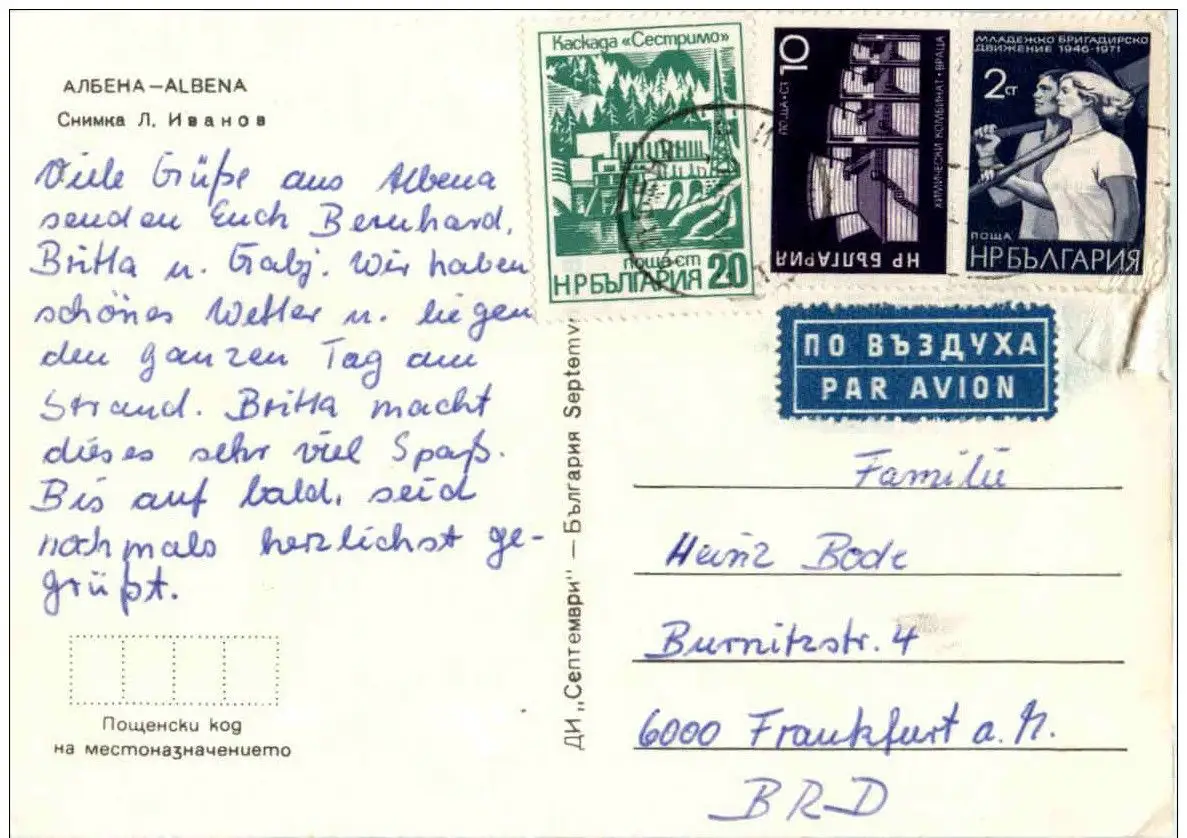 АЛБЕНА — ALBENA
Снимка Л. Иванов
Viele Grüße aus Albena
senden Euch Bernhard,
Britta u. Gabj. Wir haben
schönes Wetter u. liegen
den ganzen Tag am
Strand. Britta macht
dieses sehr viel Spaß.
Bis auf bald, seid
nochmals herzlichst ge-
grüßt.
Пощенски код
на местоназначението
ДИ „Септември" — България Septemv
Каскада «Сестримо»
поща·ст
НР БЪЛГАРИЯ 20
ПОЩА·СТ 10
ХИМИЧЕСКИ КОМБИНАТ·ВРАЦА
НР БЪЛГАРИЯ
МЛАДЕЖКО БРИГАДИРСКО
ДВИЖЕНИЕ 1946-1971
2 ст
ПОЩА
НР БЪЛГАРИЯ
ПО ВЪЗДУХА
PAR AVION
Familie
Heinz Bode
Burnitzstr. 4
6000 Frankfurt a. M.
BRD